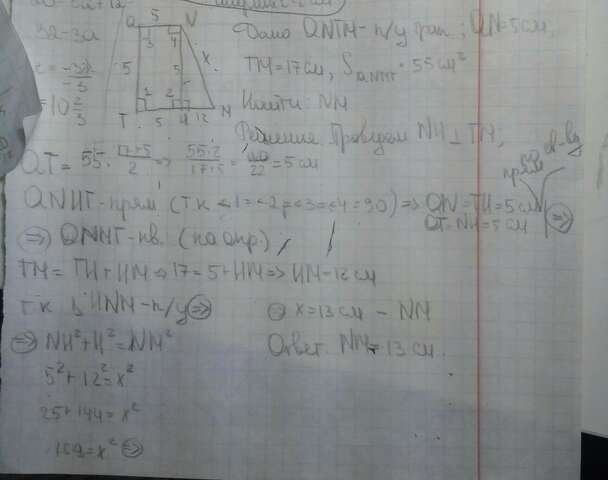 Q 5 N
3 4
5 5 x
1 2
T 5 H 12 M
Дано QNTM - п/у трап; QN=5см,
TM=17см, S QNMT = 55см²
Найти: NM
Решение. Проведем NH ⊥ TM;
QT = 55 : (17+5)/2 => 55·2/17+5 = 110/22 = 5 см
QNHT - прям. (т.к <1=<2=<3=<4=90) => QN=TH=5см
QT=NH=5см
=> QNHT - кв. (по опр.)
TM = TH + HM => 17=5+HM => HM=12 см
т.к HNM - п/у =>
=> NH²+H²=NM²
5²+12²=x²
25+144=x²
169=x² =>
=> x=13см - NM
Ответ. NM=13 см.